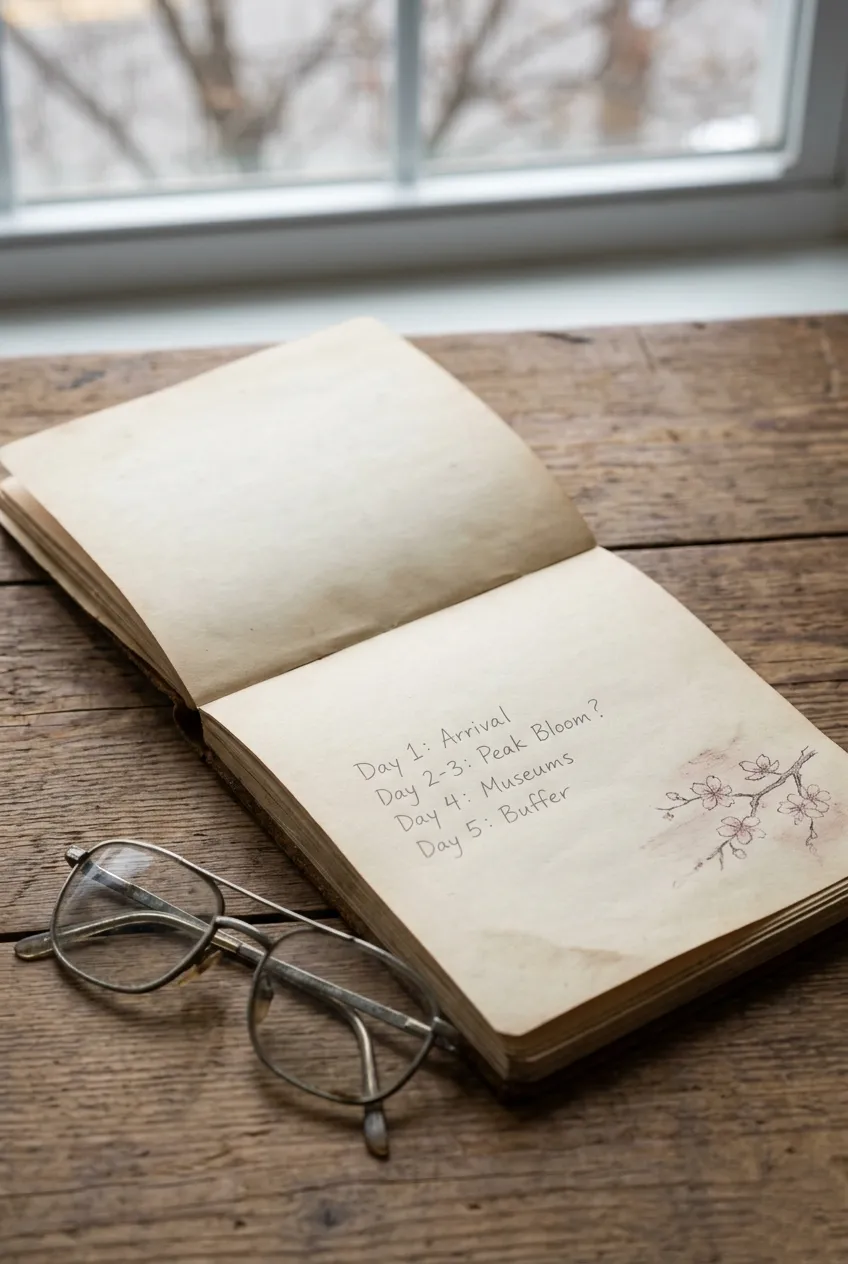 Day 1: Arrival
Day 2-3: Peak Bloom?
Day 4: Museums
Day 5: Buffer